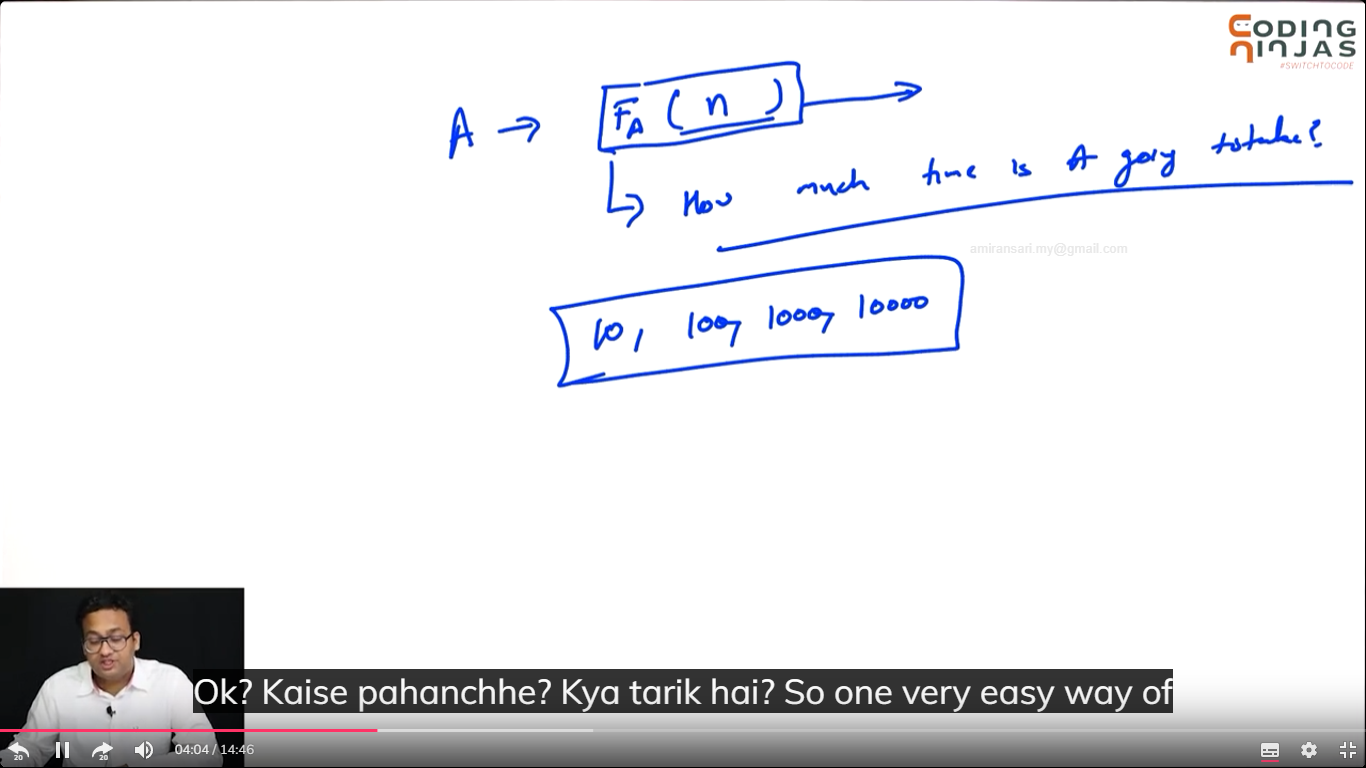 CODING
NINJAS
#SWITCHTOCODE
A → F_A ( n ) →
How much time is A going to take?
amiransari.my@gmail.com
10, 100, 1000, 10000
Ok? Kaise pahanchhe? Kya tarik hai? So one very easy way of
20 20 04:04 / 14:46